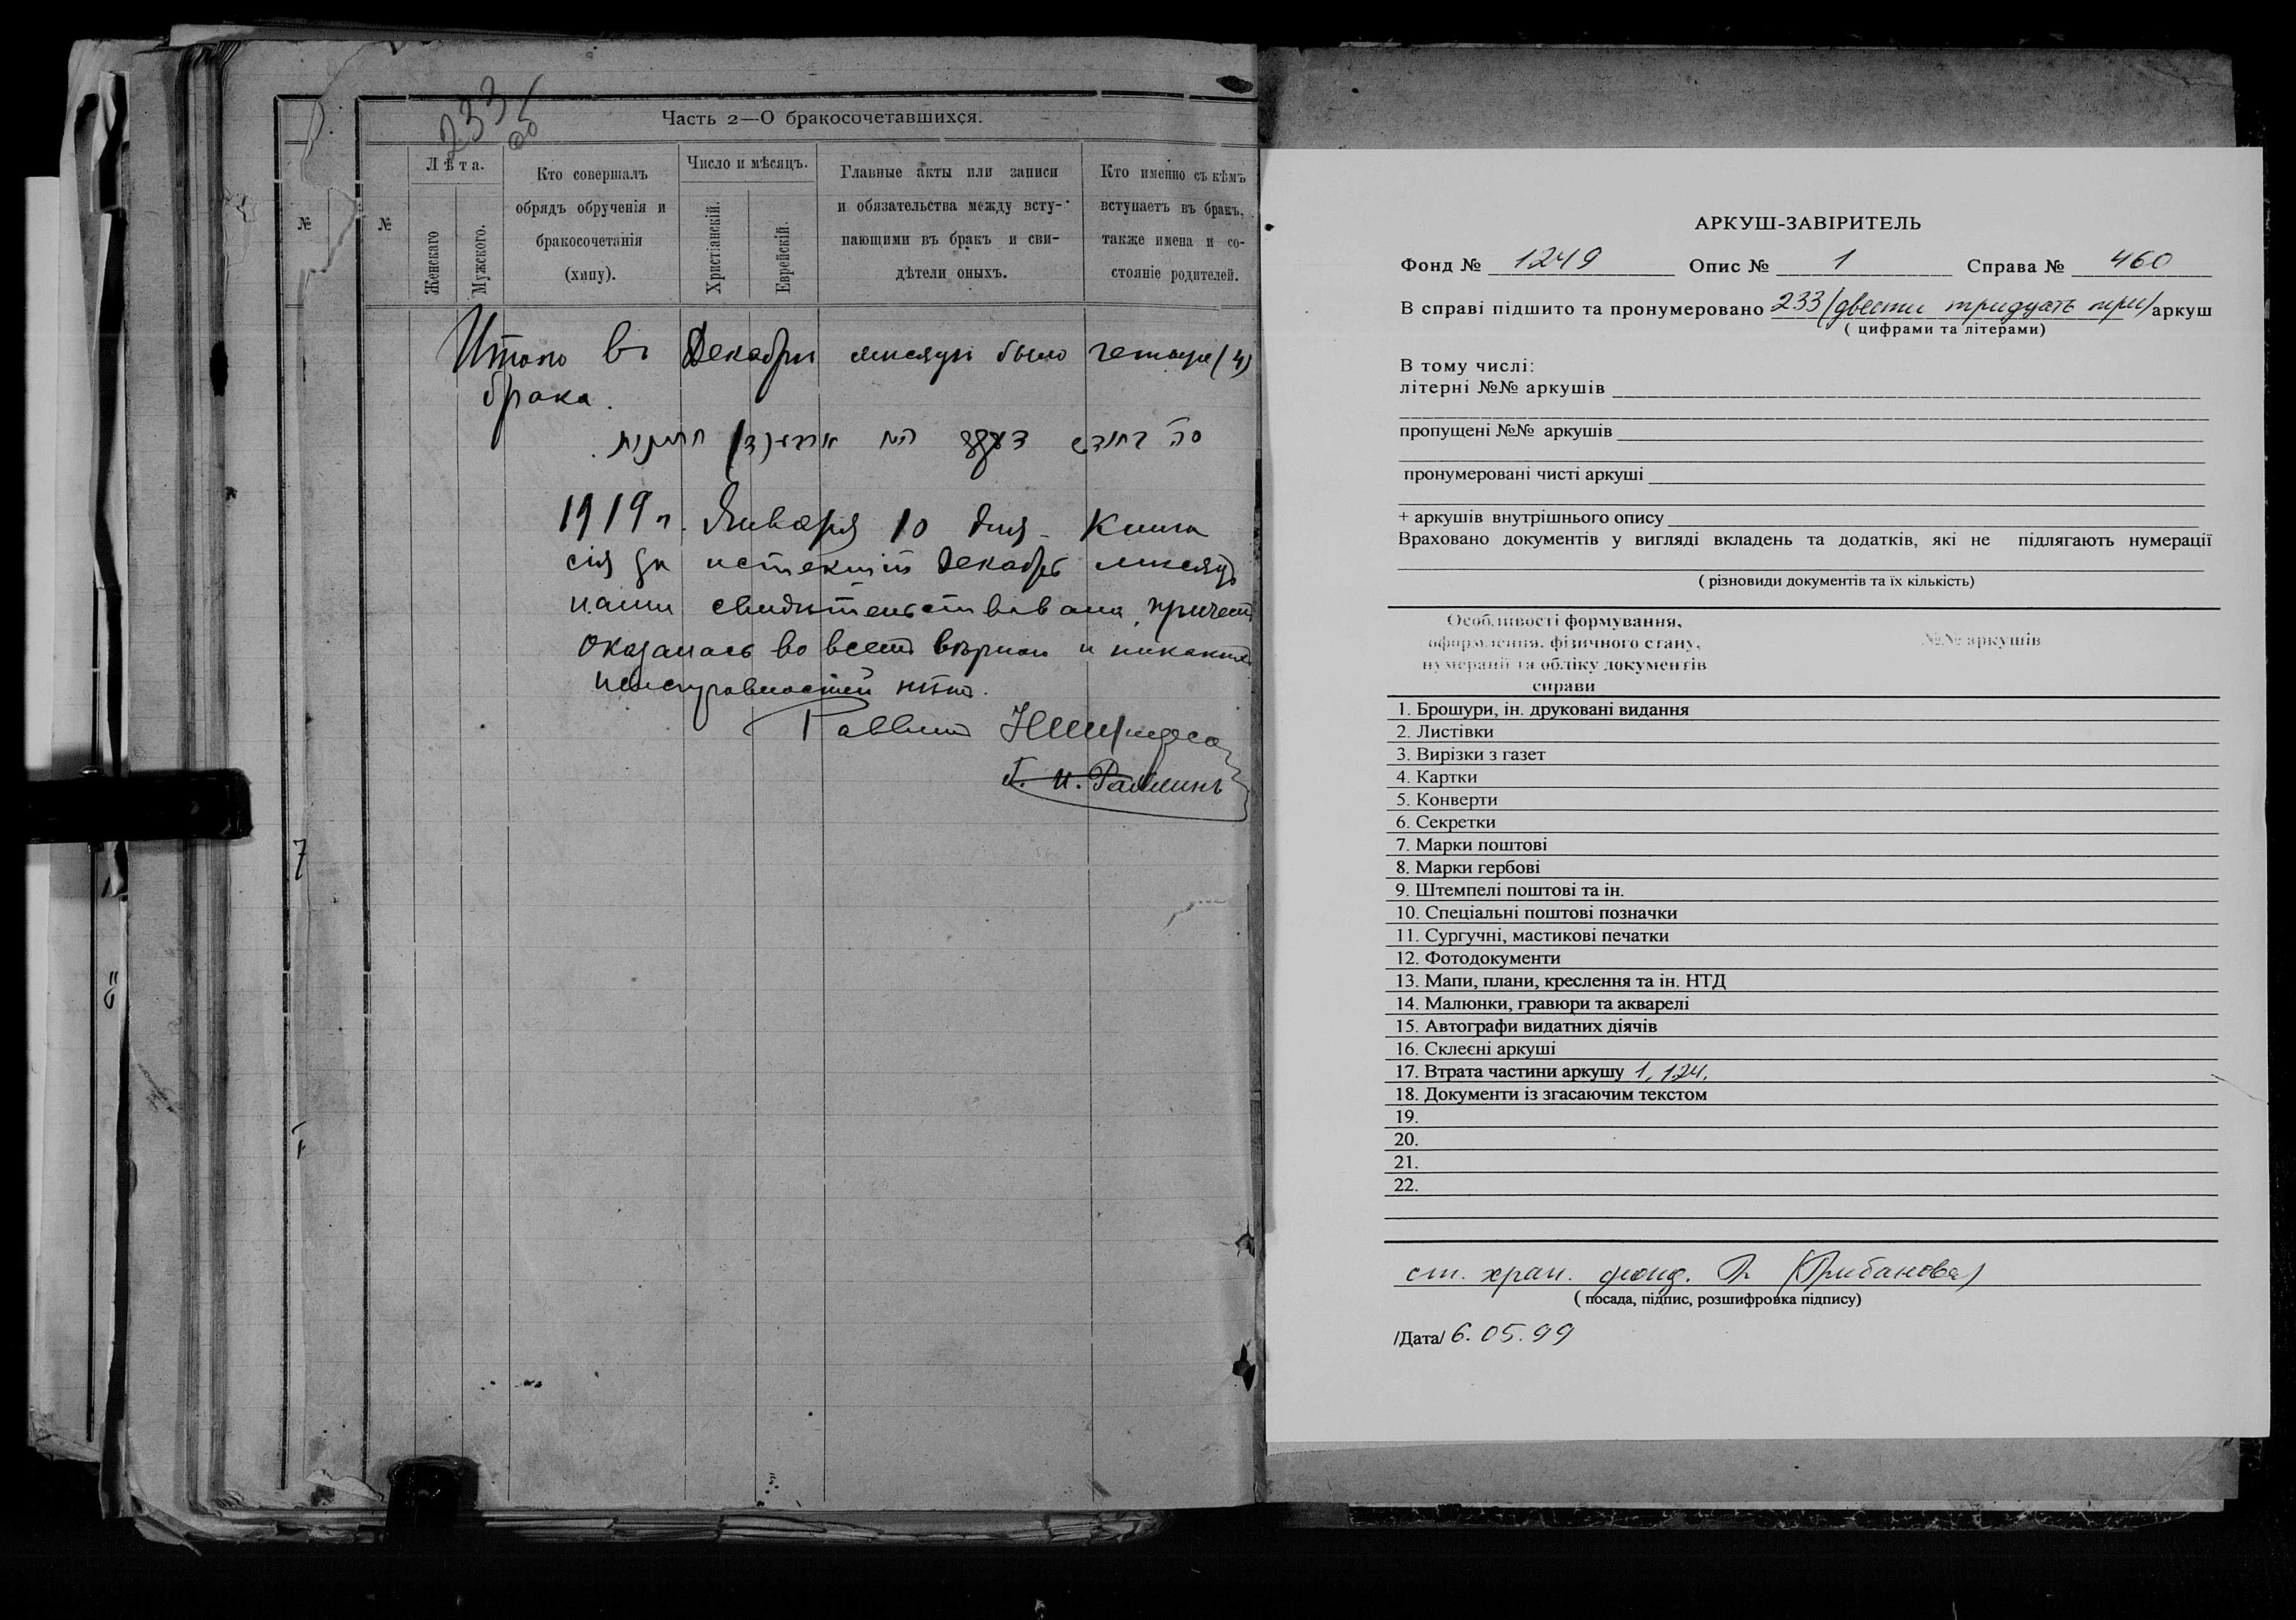 233 об
Часть 2—О бракосочетавшихся.
№
№
Лѣта.
Женскаго
Мужского.
Кто совершалъ
обрядъ обрученія и
бракосочетанія
(хипу).
Число и мѣсяцъ.
Христіанскій.
Еврейскій.
Главные акты или записи
и обязательства между всту-
пающими въ бракъ и сви-
дѣтели оныхъ.
Кто именно съ кѣмъ
вступаетъ въ бракъ,
также имена и со-
стояніе родителей.
Итого въ Декабрѣ мѣсяцѣ было четыре (4)
брака.
1919 г. Января 10 дня. Книга
сія за истекшій Декабрь мѣсяцъ
нами свидѣтельствована, причемъ
оказалась во всемъ вѣрною и никакихъ
неисправностей нѣтъ.
Раввинъ
7
АРКУШ-ЗАВІРИТЕЛЬ
Фонд № 1249 Опис № 1 Справа № 460
В справі підшито та пронумеровано 233 (двести тридцать три) аркуш
( цифрами та літерами)
В тому числі:
літерні №№ аркушів
пропущені №№ аркушів
пронумеровані чисті аркуші
+ аркушів внутрішнього опису
Враховано документів у вигляді вкладень та додатків, які не підлягають нумерації
( різновиди документів та їх кількість)
Особливості формування,
оформлення, фізичного стану,
нумерації та обліку документів
справи
№№ аркушів
1. Брошури, ін. друковані видання
2. Листівки
3. Вирізки з газет
4. Картки
5. Конверти
6. Секретки
7. Марки поштові
8. Марки гербові
9. Штемпелі поштові та ін.
10. Спеціальні поштові позначки
11. Сургучні, мастикові печатки
12. Фотодокументи
13. Мапи, плани, креслення та ін. НТД
14. Малюнки, гравюри та акварелі
15. Автографи видатних діячів
16. Склеєні аркуші
17. Втрата частини аркушу 1, 124.
18. Документи із згасаючим текстом
19.
20.
21.
22.
ст. хран. фонд. (Грибанова)
( посада, підпис, розшифровка підпису)
/Дата/ 6.05.99